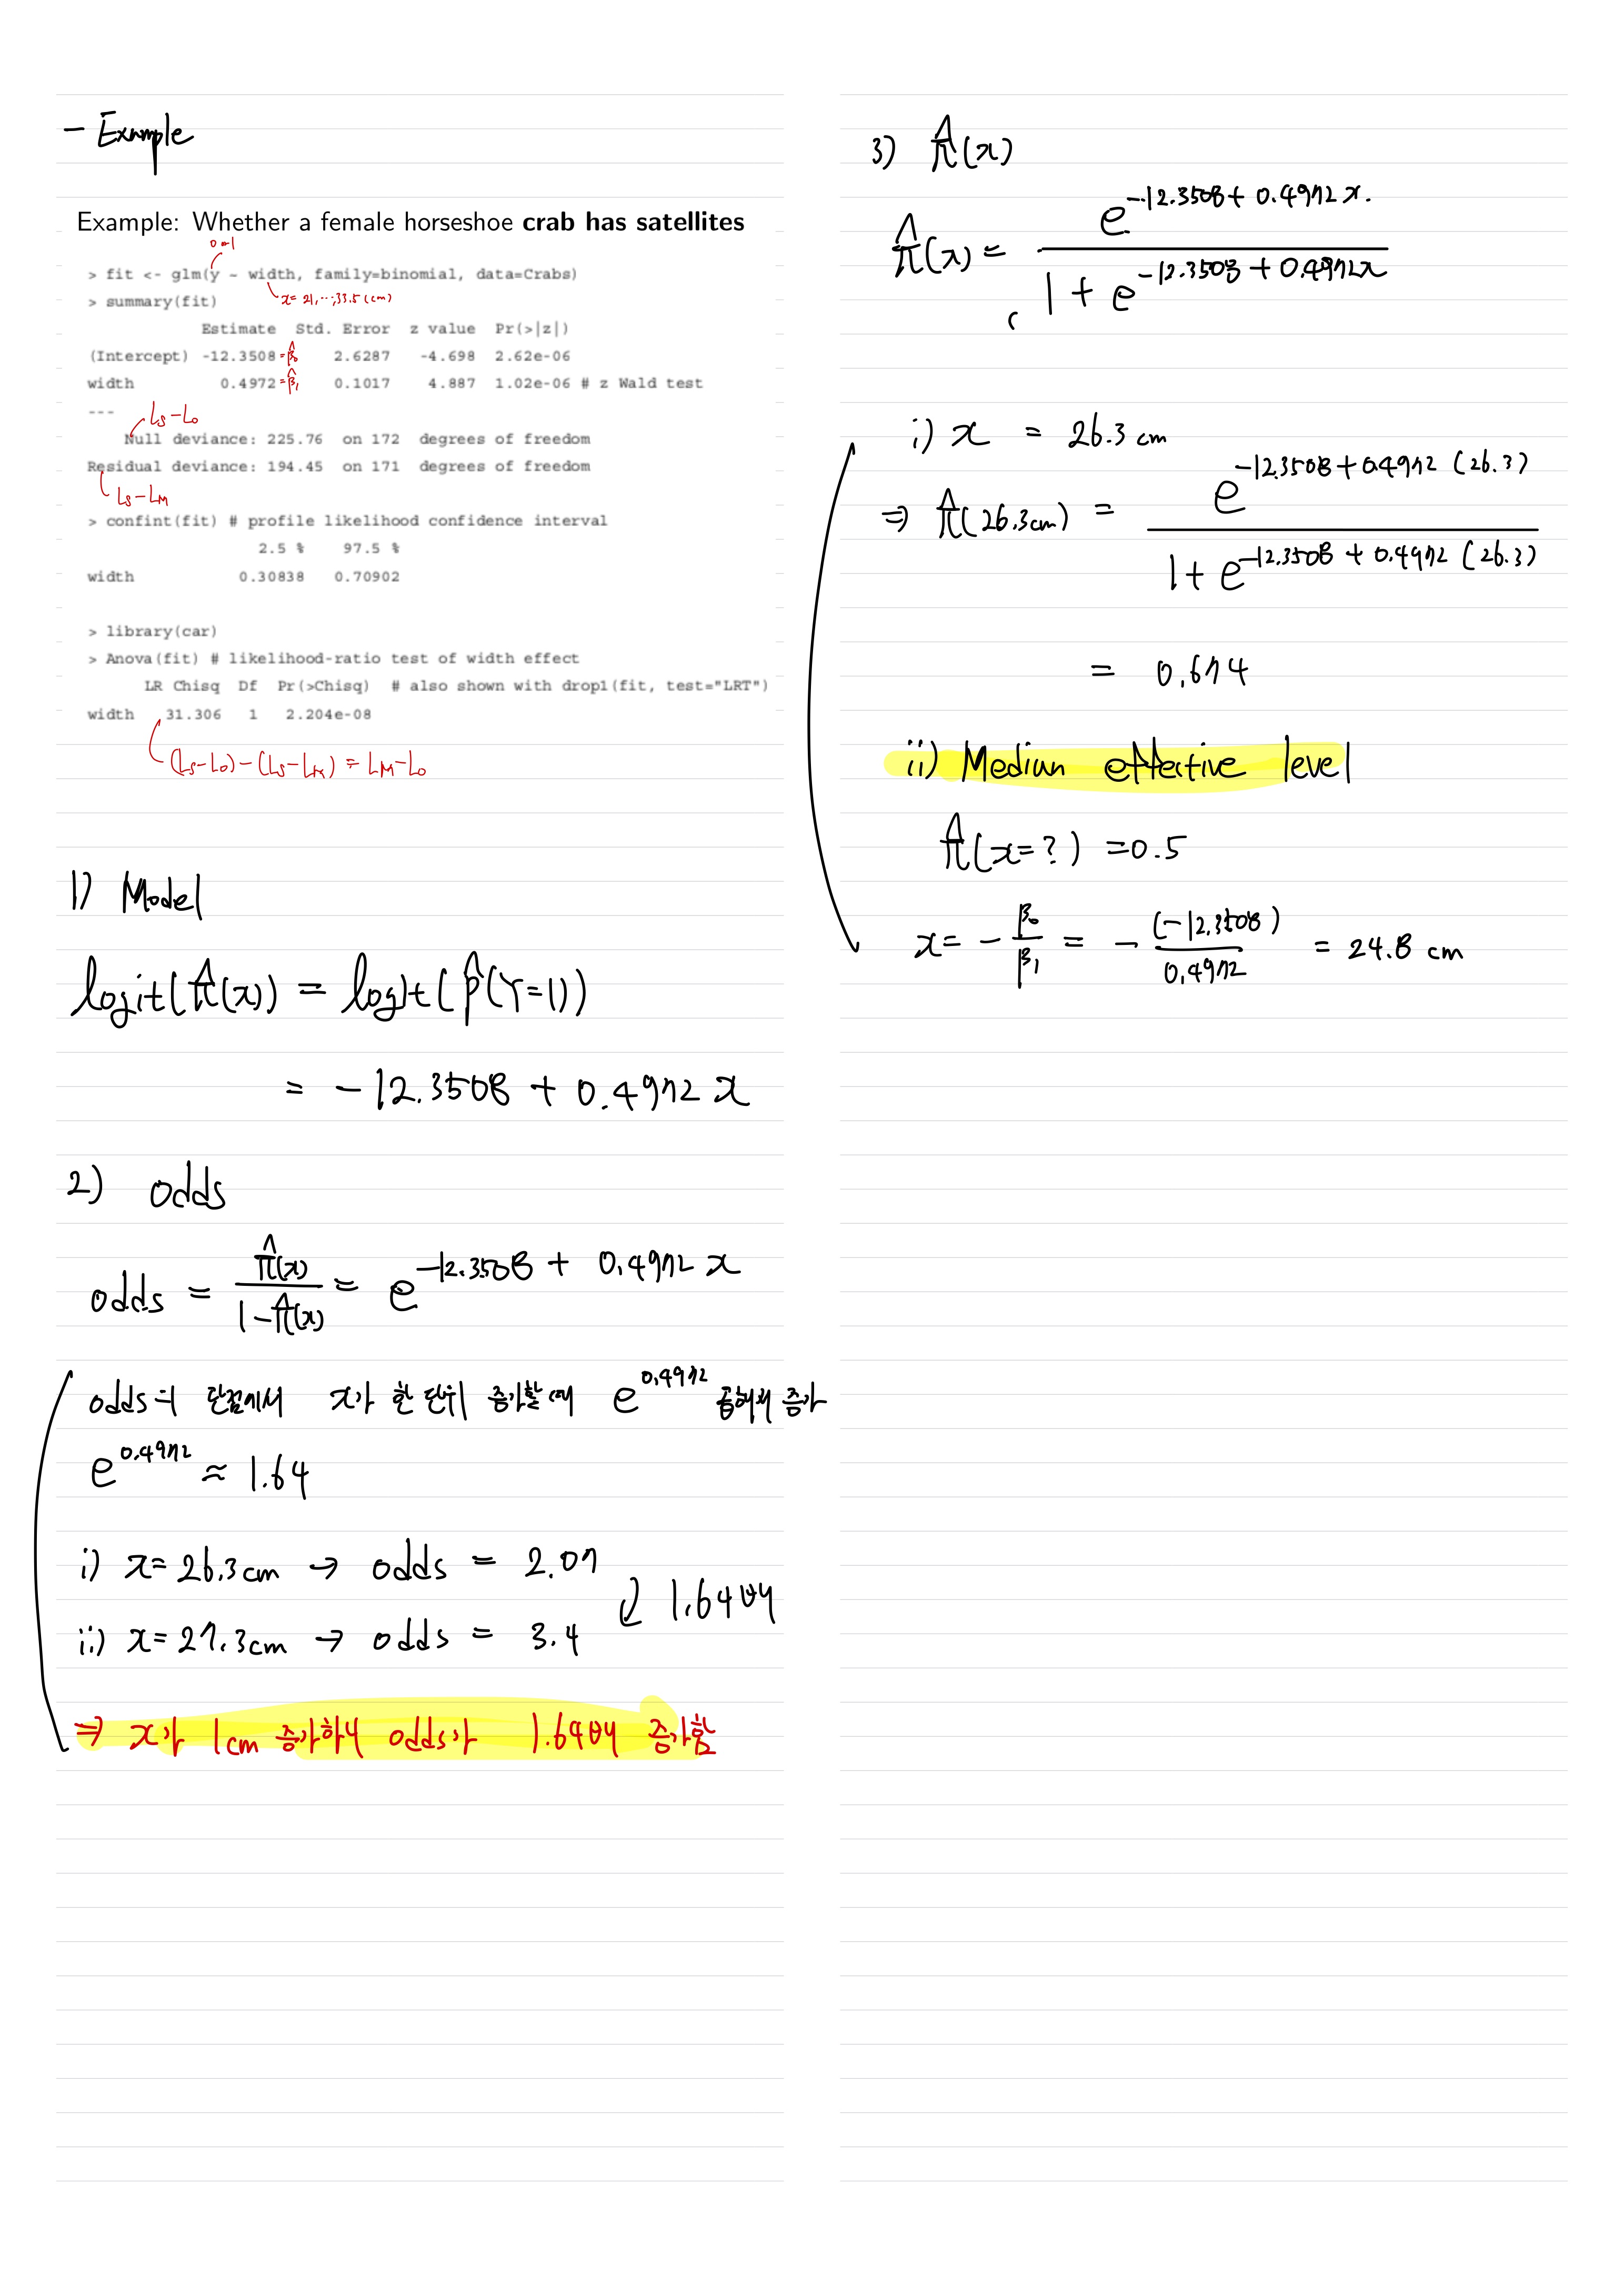 - Example
Example: Whether a female horseshoe crab has satellites
0 or 1
> fit <- glm(y ~ width, family=binomial, data=Crabs)
> summary(fit)
x= 21, ..., 33.5 (cm)
Estimate Std. Error z value Pr(>|z|)
(Intercept) -12.3508 = β̂₀ 2.6287 -4.698 2.62e-06
width 0.4972 = β̂₁ 0.1017 4.887 1.02e-06 # z Wald test
---
Ls-L0
Null deviance: 225.76 on 172 degrees of freedom
Residual deviance: 194.45 on 171 degrees of freedom
Ls-LM
> confint(fit) # profile likelihood confidence interval
2.5 % 97.5 %
width 0.30838 0.70902
> library(car)
> Anova(fit) # likelihood-ratio test of width effect
LR Chisq Df Pr(>Chisq) # also shown with drop1(fit, test="LRT")
width 31.306 1 2.204e-08
(Ls-L0)-(Ls-LM) = LM-L0
1) Model
logit(π̂(x)) = logit(P̂(Y=1))
= -12.3508 + 0.4972x
2) odds
odds = π̂(x)/(1-π̂(x)) = e^(-12.3508 + 0.4972x)
odds의 관점에서 x가 한 단위 증가할 때 e^0.4972 곱해져 증가
e^0.4972 ≈ 1.64
i) x= 26.3cm → odds = 2.07
1.64배
ii) x= 27.3cm → odds = 3.4
⇒ x가 1cm 증가하니 odds가 1.64배 증가함
3) π̂(x)
π̂(x) = e^(-12.3508 + 0.4972x) / (1 + e^(-12.3508 + 0.4972x))
i) x = 26.3 cm
⇒ π̂(26.3cm) = e^(-12.3508+0.4972(26.3)) / (1 + e^(-12.3508 + 0.4972(26.3)))
= 0.674
ii) Median effective level
π̂(x=?) = 0.5
x = - β₀/β₁ = - (-12.3508)/0.4972 = 24.8 cm